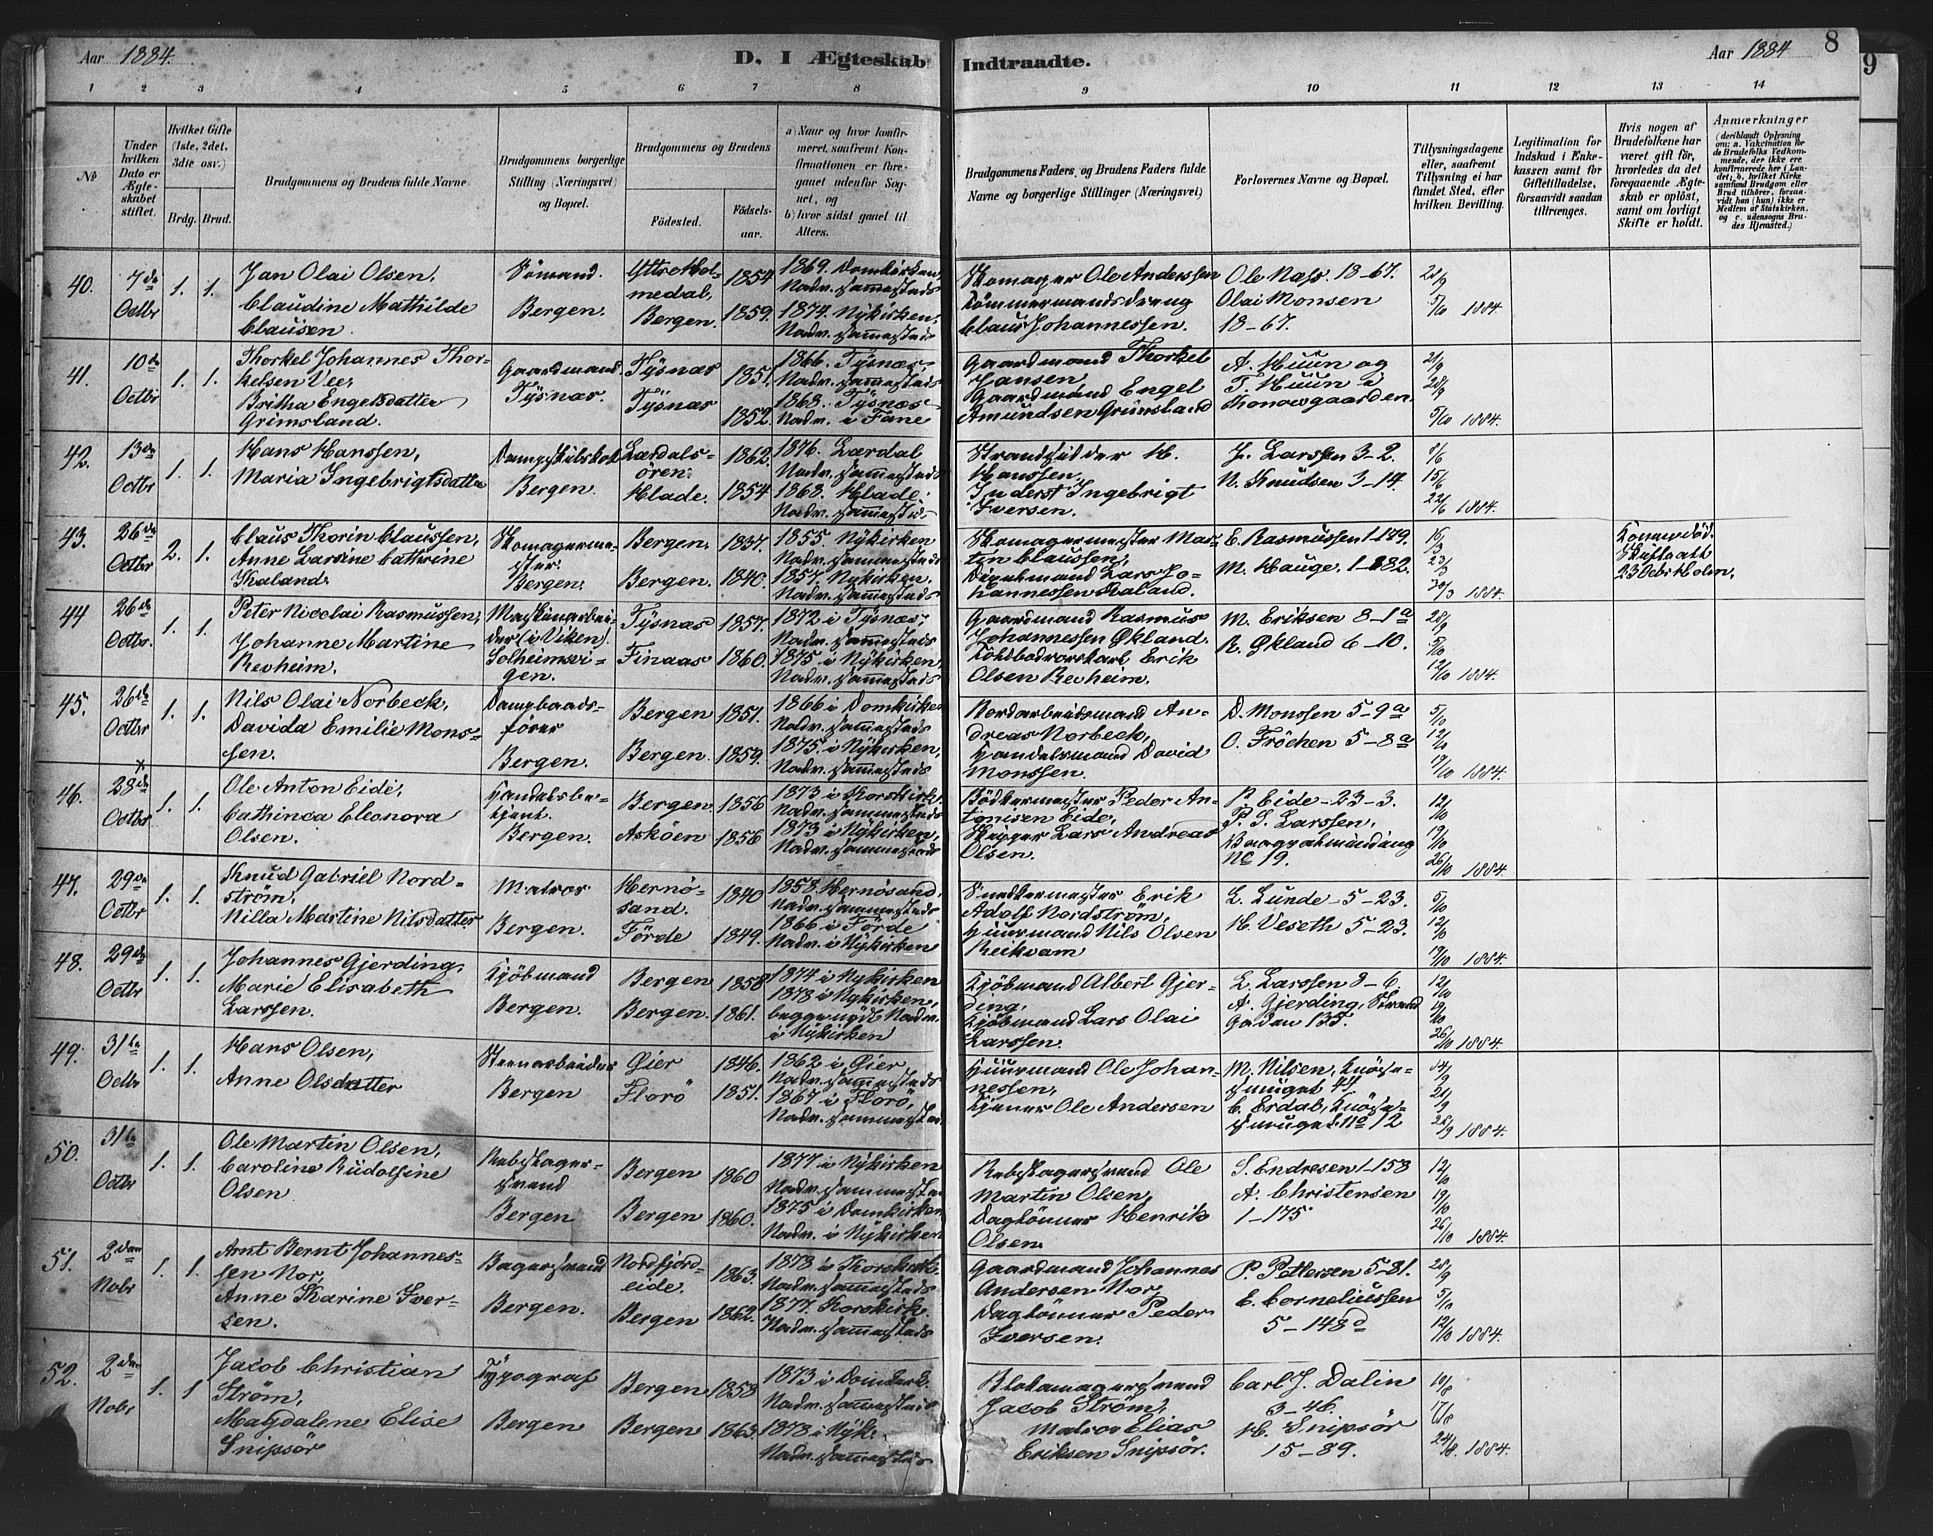 Aar 1884.
D. I Ægteskab Indtraadte.
Aar 1884
8
9
1 2 3 4 5 6 7 8 9 10 11 12 13 14
No
Under hvilken Dato er Ægteskabet stiftet.
Hvilket Gifte (1ste, 2det, 3die osv.)
Brdg. Brud.
Brudgommens og Brudens fulde Navne
Brudgommens borgerlige Stilling (Næringsvei) og Bopæl.
Brudgommens og Brudens
Fødested.
Fødselsaar.
a) Naar og hvor konfirmeret, saafremt Konfirmationen er foregaaet udenfor Sognet, og
b) hvor sidst gaaet til Alters.
Brudgommens Faders og Brudens Faders fulde Navne og borgerlige Stillinger (Næringsvei)
Forlovernes Navne og Bopæl.
Tillysningsdagene eller, saafremt Tillysning ei har fundet Sted, efter hvilken Bevilling.
Legitimation for Indskud i Enkekassen samt for Giftetilladelse, forsaavidt saadan tiltrænges.
Hvis nogen af Brudefolkene har været gift før, hvorledes da det foregaaende Ægteskab er opløst, samt om lovligt Skifte er holdt.
Anmærkninger
(deriblandt Oplysning om: a. Vakcination for de Brudefolks Vedkommende, der ikke ere konfirmerede her i Landet; b. hvilket Kirkesamfund Brudgom eller Brud tilhører, forsaavidt han (hun) ikke er Medlem af Statskirken, og c. udensogns Brudes Hjemsted.)
40. 7de Octbr 1. 1.
Jan Olai Olsen,
Claudine Mathilde
Clausen.
Sømand.
Bergen.
Yttre Holmedal, 1854
Bergen. 1859.
1869. Domkirken,
Nadv. sammesteds
1874. Nykirken.
Nadv. sammesteds
Skomager Ole Anderssen
Tömmermandsdreng
Claus Johannessen.
Ole Næss. 18-67.
Olai Monsen
18-67.
28/9
5/10 1884.
41. 10de Octbr 1. 1.
Thorkel Johannes Thorkelsen Vee,
Britha Engelsdatter
Grimsland.
Gaardmand
Tysnæs.
Tysnæs 1851.
Tysnæs 1852.
1866. Tysnæs.
Nadv. sammesteds
1868. Tysnæs
Nadv. i Fane
Gaardmand Thorkel
Hansen,
Gaardmand Engel
Amundsen Grimsland
A. Huun og
T. Huun i
Konowgaarden.
21/9
28/9
5/10 1884.
42. 13de Octbr 1. 1.
Hans Hanssen,
Maria Ingebrigtsdatter
Dampskibskok
Bergen.
Lærdalsören. 1862.
Hlade. 1854
1876. Lærdal
Nadv. sammesteds
1868. Hlade.
Nadv. sammesteds
Strandsidder H.
Hanssen,
Inderst Ingebrigt
Iversen.
J. Larssen 3-2.
N. Knudsen 3-14.
8/6
15/6
22/6 1884.
43. 26de Octbr 2. 1.
Claus Thorin Claussen,
Anne Larsine Cathrine
Kaland.
Skomagermester.
Bergen.
Bergen. 1837.
Bergen. 1840.
1855 Nykirken
Nadv. sammesteds
1857. Nykirken.
Nadv. sammesteds
Skomagermester Martin Claussen,
Lars Johannessen Kaland.
E. Rasmussen 1-179.
M. Hauge. 1-182.
16/3
23/3
30/3 1884.
Konen död.
Skifteatt
44 26de Octbr. 1. 1.
Peter Nicolai Rasmussen,
Johanne Martine
Revheim.
Maskinarbeider (i Viken).
Solheimsvigen.
Tysnæs 1857.
Finaas 1860.
1872 i Tysnæs,
Nadv. sammesteds
1875 i Nykirken,
Nadv. sammesteds
Gaardmand Rasmus
Johannessen Økland.
Erik
Olsen Revheim.
M. Eriksen 8-1a
R. Økland 6-10.
28/9
5/10
12/10 1884.
45. 26de Octbr 1. 1.
Nils Olai Norbeck,
Davida Emilie Monssen.
Dampbaadsförer
Bergen.
Bergen 1851.
Bergen. 1859.
1866 i Domkirken
Nadv. sammesteds
1875. i Nykirken,
Nadv. sammesteds
Andreas Norbeck,
Handelsmand David
Monssen.
D. Monssen 5-9a
O. Fröchen 5-8a
5/10
12/10
19/10 1884.
46. 28de Octbr 1. 1.
Ole Anton Eide,
Cathinca Eleonora
Olsen.
Handelsbetjent.
Bergen.
Bergen 1856
Askøen 1856
1873 i Korskirk.
Nadv. sammesteds
1873 i Nykirken,
Nadv. sammesteds
Bödkermester Peder Antonisen Eide,
Skipper Lars Andreas
Olsen.
P. Eide - 23-3.
P. S. Larssen,
No 19.
12/10
19/10
26/10 1884.
47. 29de Octbr 1. 1.
Knud Gabriel Nordström,
Nilla Martine Nilsdatter
Matros
Bergen.
Hernösand. 1840
Förde 1849.
1858. Hernösand,
Nadv. sammesteds
1866 i Förde
Nadv. i Nykirken
Snedkermester Erik
Adolf Nordström,
Huusmand Nils Olsen
Reiksam
L. Lunde - 5-23.
H. Veseth 5-23.
5/10
12/10
19/10 1884.
48. 29de Octbr 1. 1.
Johannes Gjerding,
Marie Elisabeth
Larssen.
Kjöbmand
Bergen.
Bergen 1858
Bergen. 1861.
1874 i Nykirken
1878 i Nykirken,
begge nydt Nadv.
i Nykirken
Kjöbmand Albert Gjerding,
Kjöbmand Lars Olai
Larssen.
L. Larssen 8-6.
A. Gjerding, Strand
Gaden 135.
12/10
19/10
26/10 1884.
49. 31te Octbr 1. 1.
Hans Olsen,
Anne Olsdatter
Steenarbeider
Bergen
Øier 1846.
Florö 1851.
1862 i Øier
Nadv. sammesteds
1867 i Florö,
Nadv. sammesteds
Huusmand Ole Johannessen,
Ole Andersen
M. Nilsen, Knösesmuget 44.
E. Erdal, Knösesmuget No 12
14/9
21/9
28/9 1884.
50. 31te Octbr 1. 1.
Ole Martin Olsen,
Caroline Rudolfine
Olsen.
Rebslagersvend
Bergen
Bergen 1860
Bergen 1860.
1877 i Nykirken
Nadv. sammesteds
1875 i Domkirken
Nadv. i Nykirken
Rebslagersvend Ole
Martin Olsen,
Daglönner Henrik
Olsen
S. Endresen 1-158
A. Christensen
1-175
12/10
19/10
26/10 1884.
51. 2den Nobr 1. 1.
Arnt Bernt Johannessen Nor,
Anne Karine Iversen.
Bagersvend
Bergen.
Nordfjordeide. 1863.
Bergen 1862.
1878 i Korskirk.
Nadv. sammesteds
1877. Korskirk.
Nadv. sammesteds
Gaardmand Johannes
Andersen Nor,
Daglönner Peder
Iversen.
P. Pettersen 5-81.
E. Corneliussen
5-148d
28/9
5/10
12/10 1884.
52. 2den Nobr 1. 1
Jacob Christian
Ström,
Magdalene Elise
Snipsör
Typograf
Bergen
Bergen 1858
Bergen 1863.
1873 i Domkirk.
Nadv. sammesteds
1878 i Nyk.
Nadv. sammesteds
Blokmagersvend
Jacob Ström,
Matros Elias
Eriksen Snipsör.
Carl J. Dalin
3-46.
H. Snipsör
15-89.
10/8
17/8
24/8. 1884.